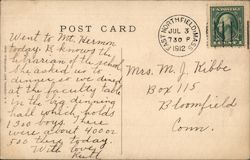 POST CARD
EAST NORTHFIELD, MASS.
JUL 3
7 30 P
1912
Went to Mt. Hermon
today. R. knows the
librarian of the school.
She asked us to
dinner, so we dined
at the faculty table
in the big dinning
hall which holds
1300 boys. There
were about 400 or
500 there today.
With love,
Ruth
Mrs. M. J. Kibbe
Box 115
Bloomfield
Conn.